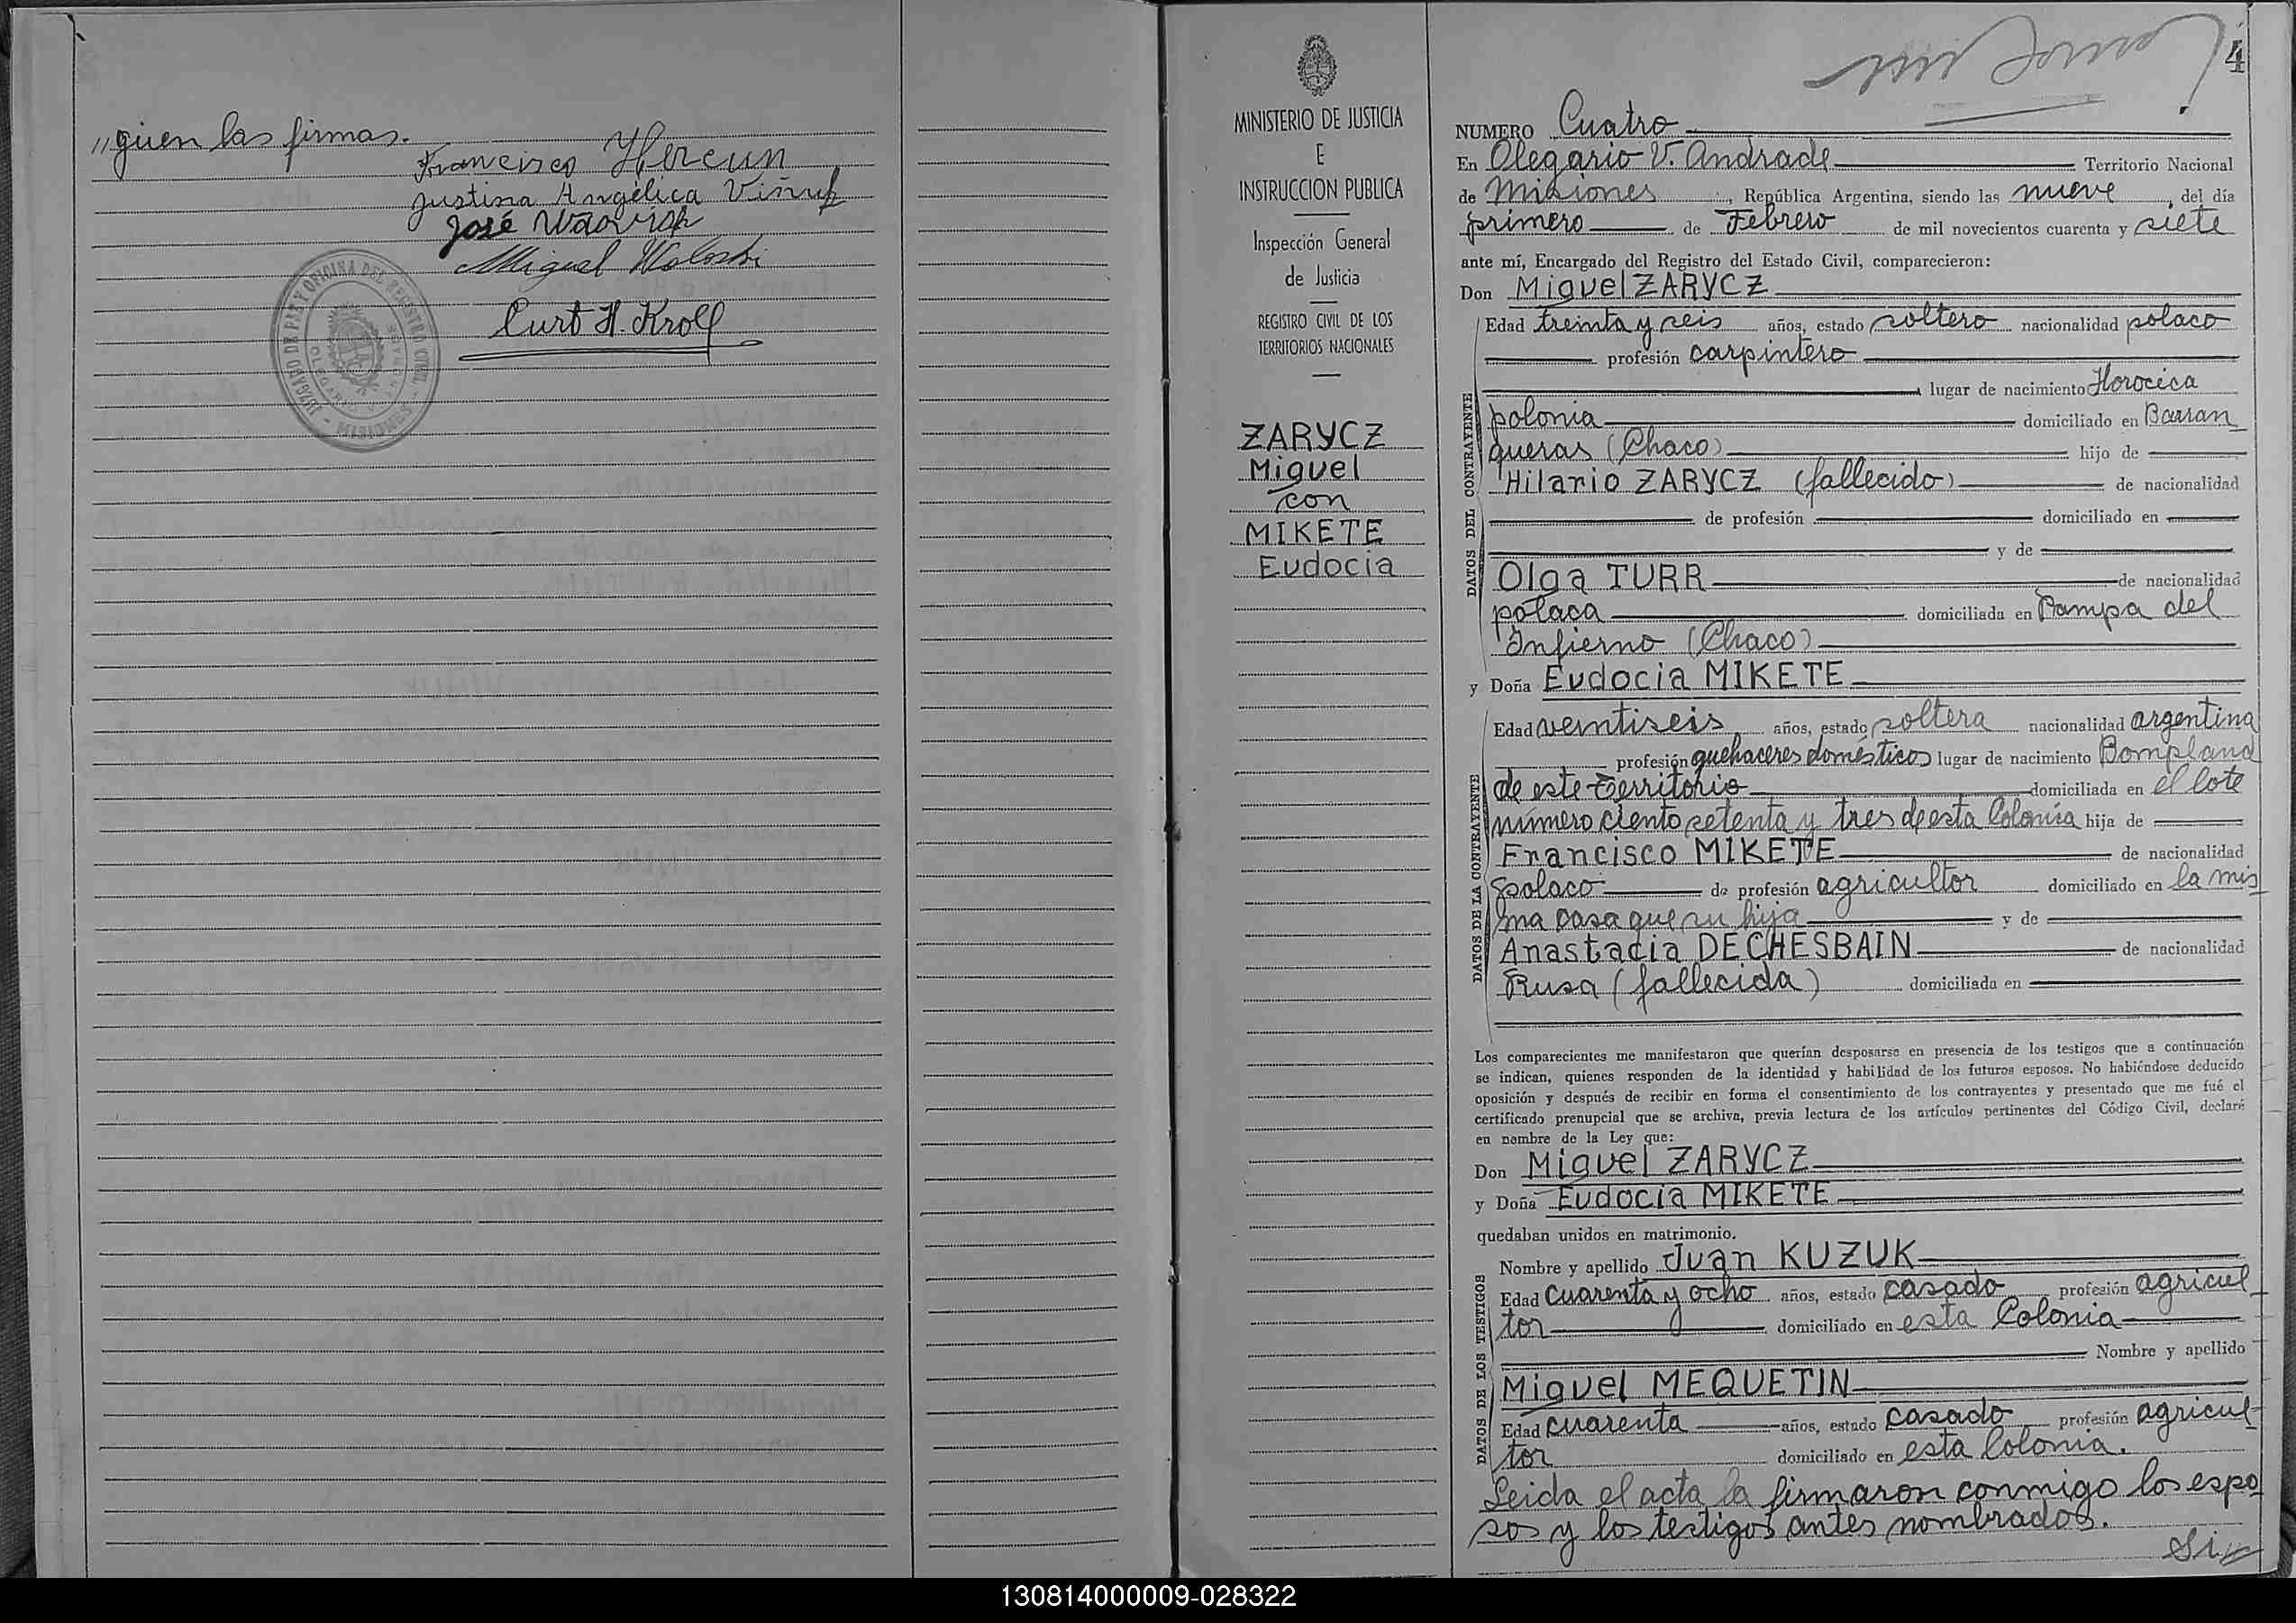 „guen las firmas.
Francisco Hrecun
Justina Angélica Viñuk
José
Miguel Woloski
Curt H. Kroll
JUZGADO DE PAZ Y OFICINA DEL REGISTRO CIVIL
4
MINISTERIO DE JUSTICIA
E
INSTRUCCION PUBLICA
Inspección General
de Justicia
REGISTRO CIVIL DE LOS
TERRITORIOS NACIONALES
ZARYCZ
Miguel
con
MIKETE
Eudocia
NUMERO Cuatro
En Olegario V. Andrade Territorio Nacional
de Misiones, República Argentina, siendo las nueve, del día
primero de Febrero de mil novecientos cuarenta y siete
ante mí, Encargado del Registro del Estado Civil, comparecieron:
Don Miguel ZARYCZ
DATOS DEL CONTRAYENTE
Edad treinta y seis años, estado soltero nacionalidad polaco
profesión carpintero
lugar de nacimiento Horocica
polonia domiciliado en Barran
queras (Chaco) hijo de
Hilario ZARYCZ (fallecido) de nacionalidad
de profesión domiciliado en
y de
Olga TURR de nacionalidad
polaca domiciliada en Pampa del
Infierno (Chaco)
y Doña Eudocia MIKETE
DATOS DE LA CONTRAYENTE
Edad veintiseis años, estado soltera nacionalidad argentina
profesión quehaceres domésticos lugar de nacimiento Bompland
de este Territorio domiciliada en el lote
número ciento setenta y tres de esta Colonia hija de
Francisco MIKETE de nacionalidad
polaco de profesión agricultor domiciliado en la mis
ma casa que su hija y de
Anastacia DECHESBAIN de nacionalidad
Rusa (fallecida) domiciliada en
Los comparecientes me manifestaron que querían desposarse en presencia de los testigos que a continuación
se indican, quienes responden de la identidad y habilidad de los futuros esposos. No habiéndose deducido
oposición y después de recibir en forma el consentimiento de los contrayentes y presentado que me fué el
certificado prenupcial que se archiva, previa lectura de los artículos pertinentes del Código Civil, declaré
en nombre de la Ley que:
Don Miguel ZARYCZ
y Doña Eudocia MIKETE
quedaban unidos en matrimonio.
DATOS DE LOS TESTIGOS
Nombre y apellido Juan KUZUK
Edad cuarenta y ocho años, estado casado profesión agricul
tor domiciliado en esta Colonia
Nombre y apellido
Miguel MEQUETIN
Edad cuarenta años, estado casado profesión agricul-
tor domiciliado en esta Colonia.
Leida el acta la firmaron conmigo los espo
sos y los testigos antes nombrados.
Si„
130814000009-028322